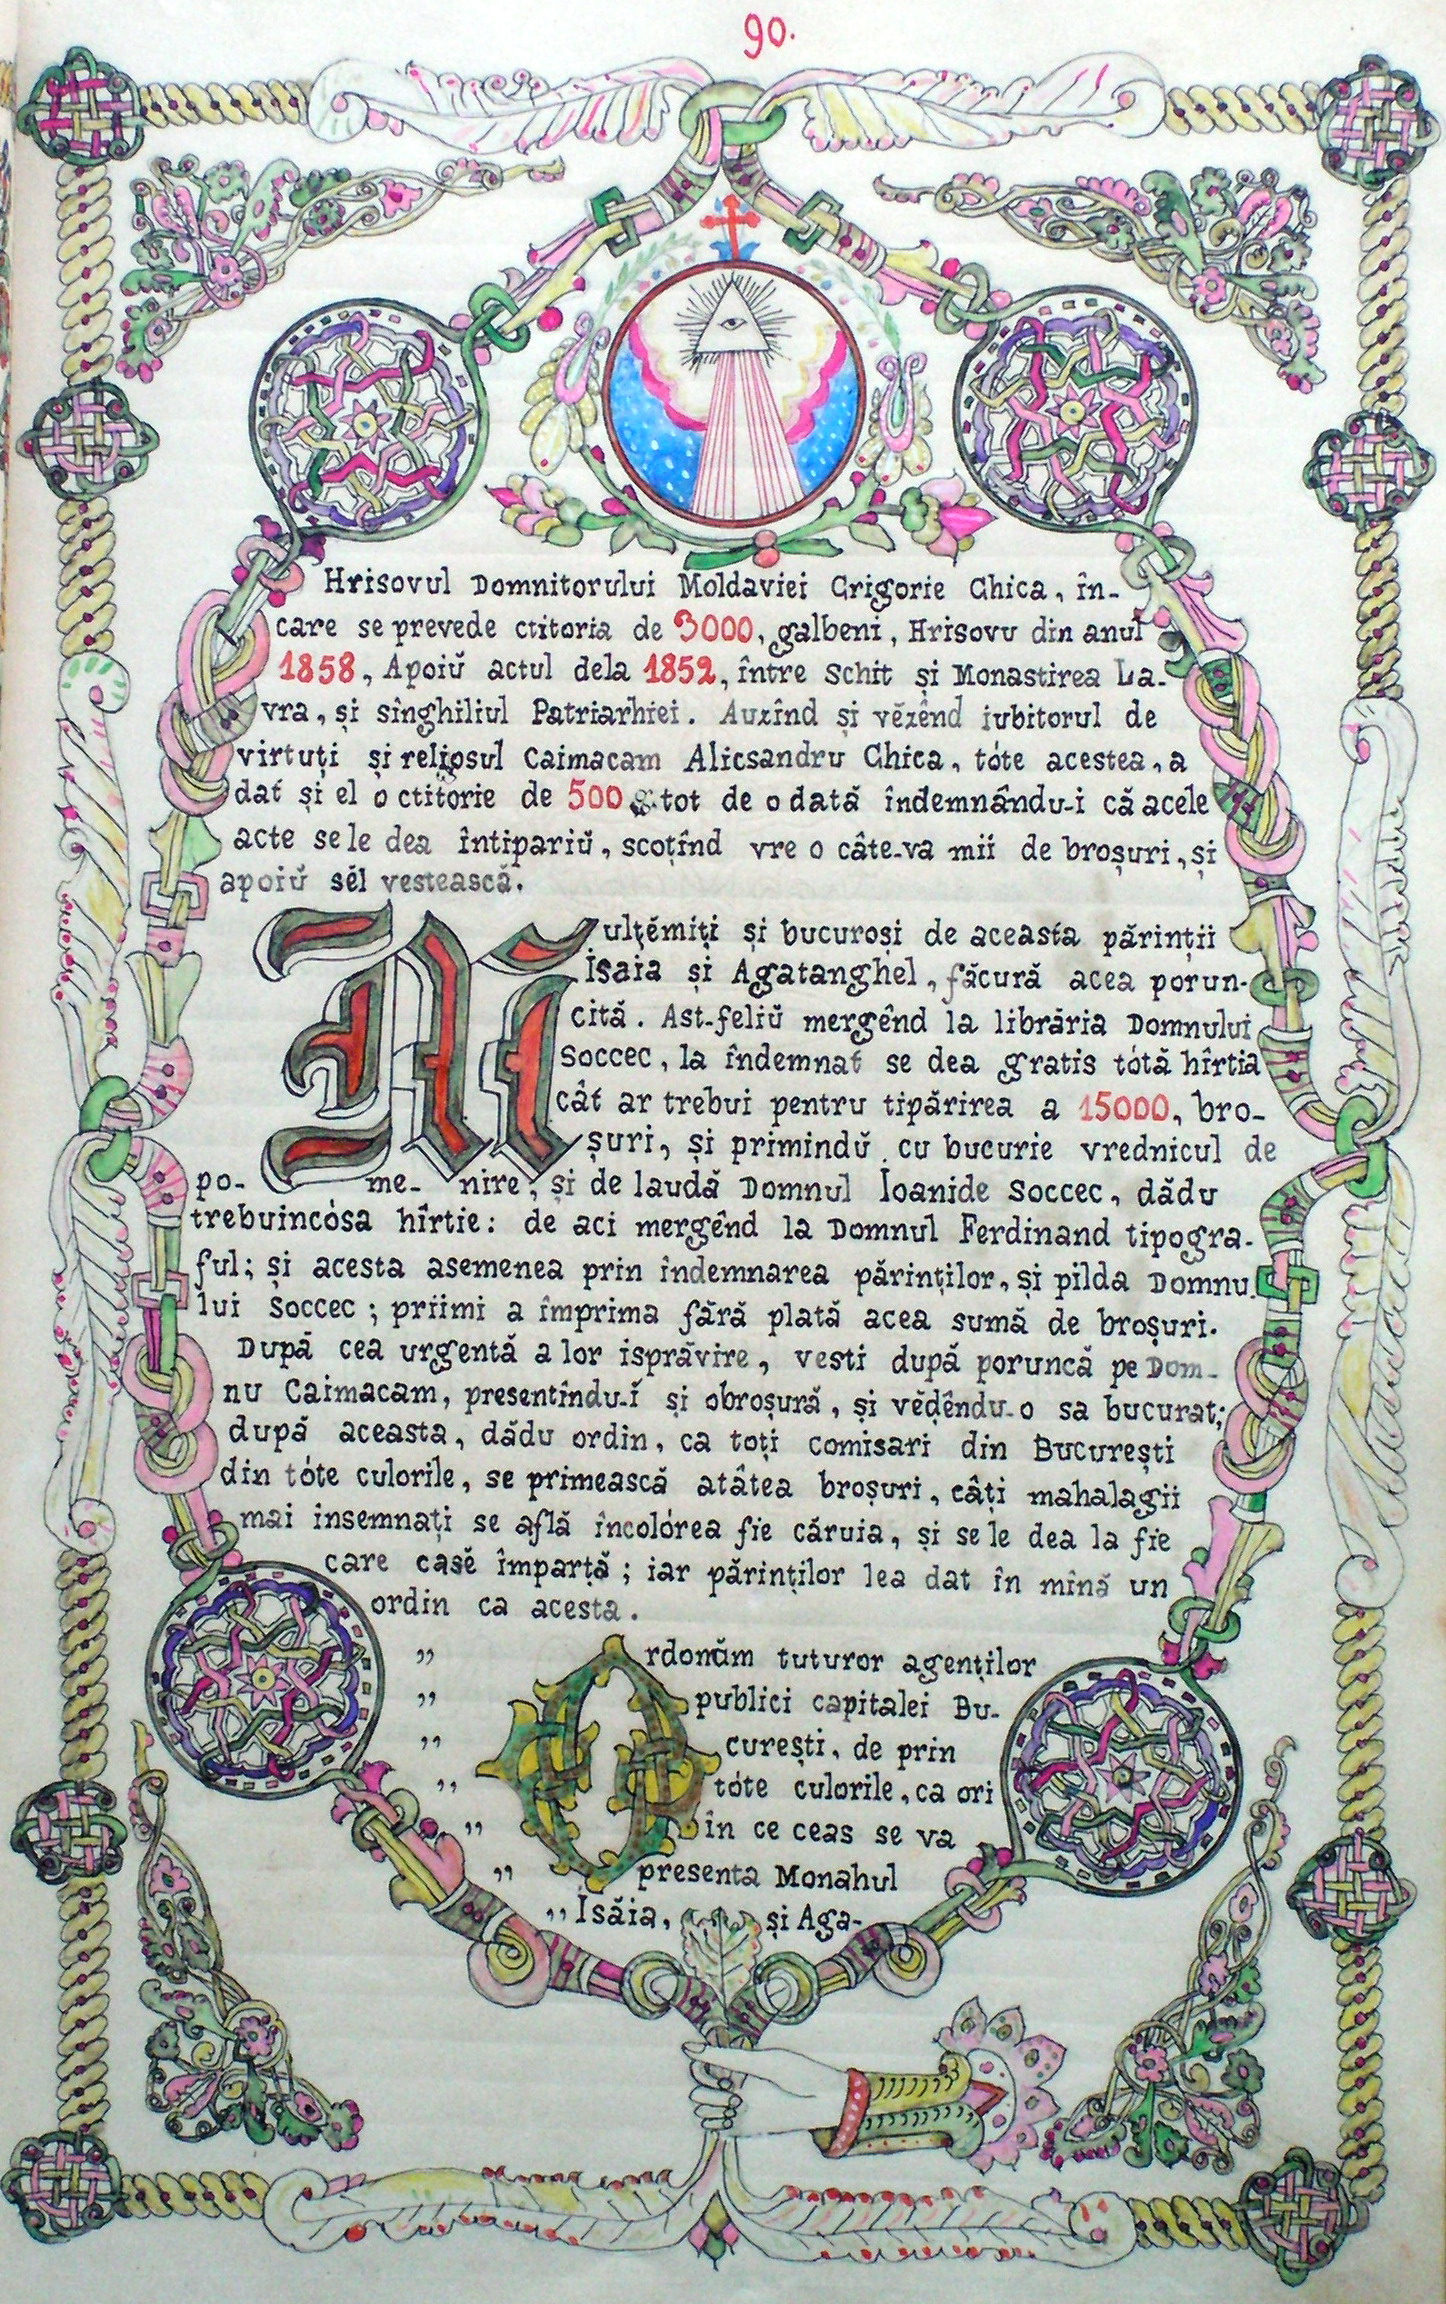 90.
Hrisovul Domnitorului Moldaviei Grigorie Ghica, în-
care se prevede ctitoria de 3000, galbeni, Hrisovu din anul
1858, Apoiŭ actul dela 1852, între Schit și Monastirea La-
vra, și sînghiliul Patriarhiei. Auzînd și vĕzênd iubitorul de
virtuți și religosul Caimacam Alicsandru Ghica, tóte acestea, a
dat și el o ctitorie de 500 g. tot de o dată îndemnându-i că acele
acte se le dea întipariŭ, scoțînd vre o câte-va mii de broșuri, și
apoiŭ sĕl vestească.
Mulțĕmiți și bucuroși de aceasta părinții
Isaia și Agatanghel, făcură acea porun-
cită. Ast-feliŭ mergênd la librăria Domnului
Soccec, la îndemnat se dea gratis tótă hîrtia
cât ar trebui pentru tipărirea a 15000, bro-
șuri, și primindŭ cu bucurie vrednicul de
po- me- nire, și de laudă Domnul Ioanide Soccec, dădu
trebuincósa hîrtie: de aci mergênd la Domnul Ferdinand tipogra-
ful; și acesta asemenea prin îndemnarea părinților, și pilda Domnu-
lui Soccec; priimi a împrima fără plată acea sumă de broșuri.
După cea urgentă a lor isprăvire, vesti după poruncă pe Dom-
nu Caimacam, presentîndu-ĭ și obroșură, și vĕdêndu-o sa bucurat;
după aceasta, dădu ordin, ca toți comisari din București
din tóte culorile, se primească atâtea broșuri, câți mahalagii
mai insemnați se află încolórea fie căruia, și se le dea la fie
care casĕ împarță; iar părinților lea dat în mînă un
ordin ca acesta.
„ Ordonăm tuturor agenților
„ publici capitalei Bu-
„ curești, de prin
„ tóte culorile, ca ori
„ în ce ceas se va
„ presenta Monahul
„ Isăia, și Aga-